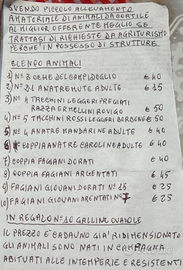 SVENDO PICCOLO ALLEVAMENTO
AMATORIALE DI ANIMALI DA CORTILE
AL MIGLIOR OFFERENTE MEGLIO SE
TRATTASI DI RICHIESTE DA AGRITURISMO
PERCHE' IN POSSESSO DI STRUTTURE.
ELENCO ANIMALI
1) N° 3 OCHE DEL CAMPIDOGLIO € 40
2) N° 21 ANATRE MUTE ADULTE € 15
3) N° 4 TACCHINI LEGGERI PREGIATI
RAZZA ERMELLINI ROVIGO € 50
4) N° 5 TACCHINI ROSSI LEGGERI BORBONE € 50
5) N° 4 ANATRE MANDARINE ADULTE € 40
6) COPPIA ANATRE CAROLINE ADULTE € 40
7) COPPIA FAGIANI DORATI € 40
8) COPPIA FAGIANI ARGENTATI € 45
9) FAGIANI GIOVANI DORATI N° 25 € 25
10) FAGIANI GIOVANI ARGENTATI N° 7 € 25
IN REGALO N° 10 GALLINE OVAIOLE
IL PREZZO E' CADAUNO GIA' RIDIMENSIONATO
GLI ANIMALI SONO NATI IN CAMPAGNA
ABITUATI ALLE INTEMPERIE E RESISTENTI